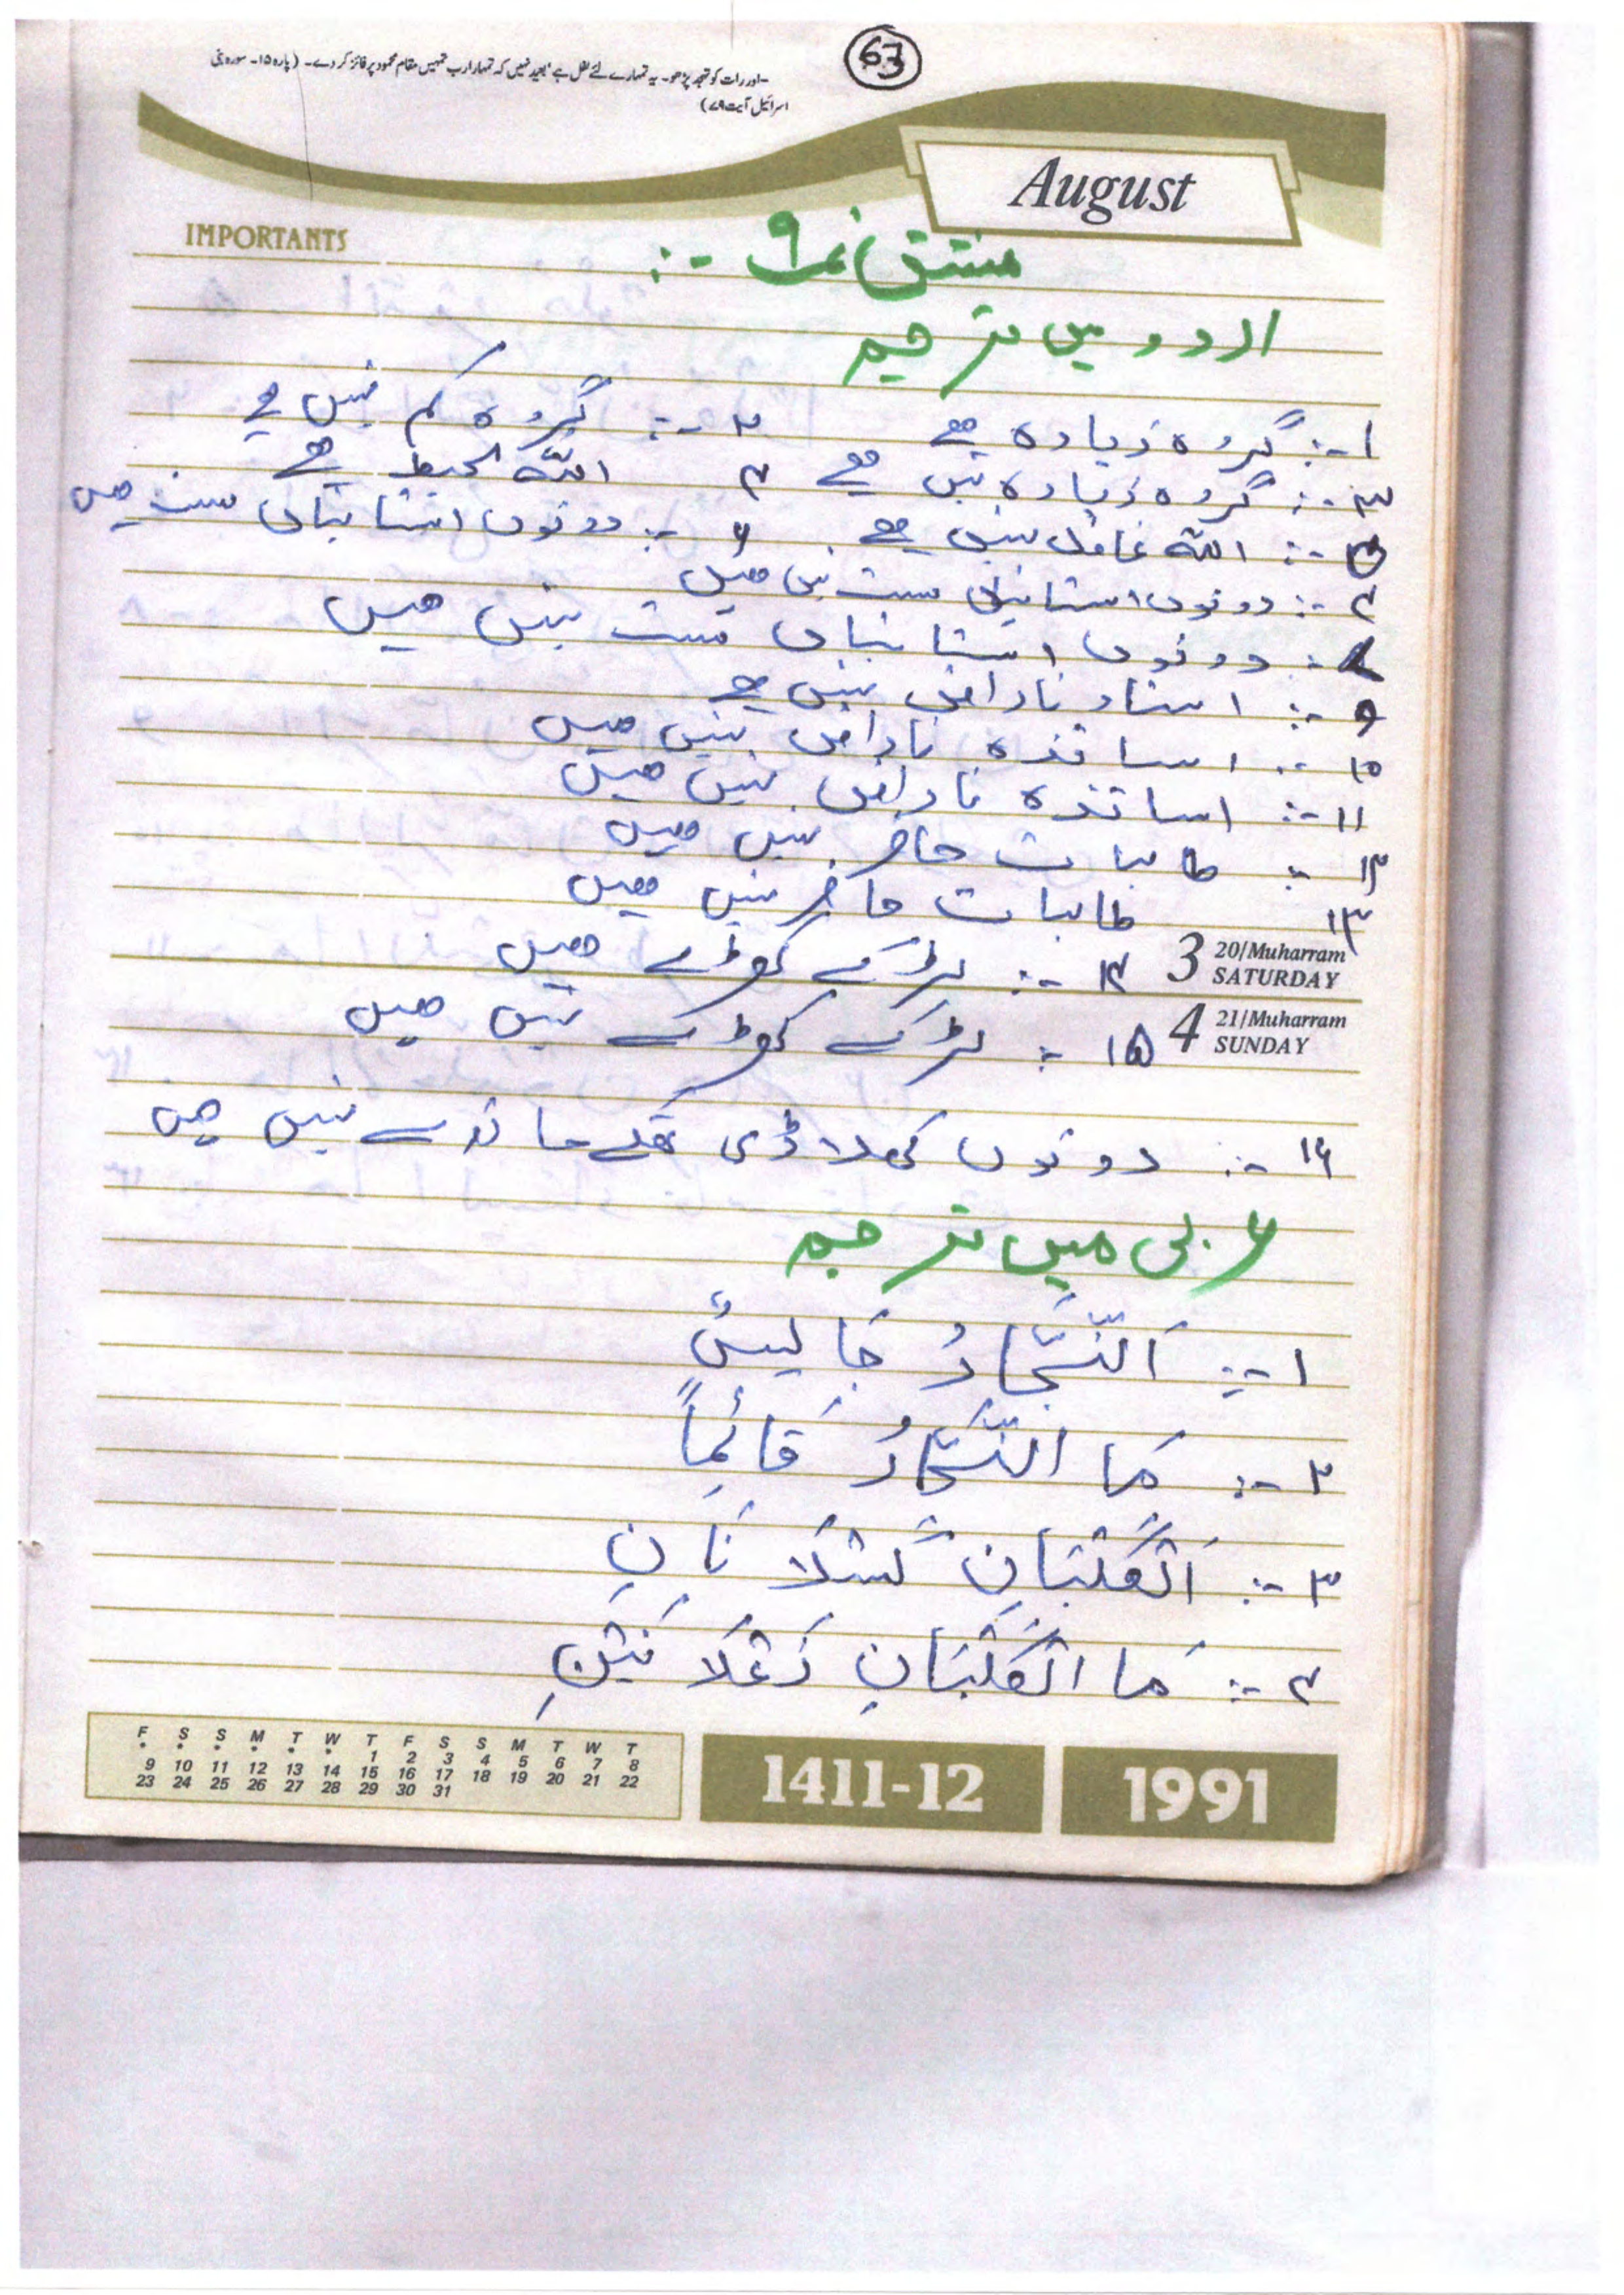 63
-اور رات کو تہجد پڑھو۔ یہ تمہارے لئے نفل ہے بعید نہیں کہ تمہارا رب تمہیں مقام محمود پر فائز کر دے۔ (پارہ ۱۵۔ سورہ بنی
اسرائیل آیت ۷۹)
August
IMPORTANTS
مشق نمبر ۹ -:
اردو میں ترجمہ
۱ -: گروہ زیادہ ہے ۲ -: گروہ کم نہیں ہے
۳ -: گروہ زیادہ نہیں ہے ۴ اللہ محیط ہے
۵ -: اللہ غافل نہیں ہے ۶ -: دونوں استانیاں ست ہیں
۷ -: دونوں استانیاں ست نہیں ہیں
-: دونوں استانیاں ست نہیں ہیں
۹ -: استاد ناراض نہیں ہے
۱۰ -: اساتذہ ناراض نہیں ہیں
۱۱ -: اساتذہ ناراض نہیں ہیں
۱۲ -: طالبات حاضر نہیں ہیں
۱۳ طالبات حاضر نہیں ہیں
3 20/Muharram SATURDAY
۱۴ -: لڑکے کھڑے ہیں
4 21/Muharram SUNDAY
۱۵ -: لڑکے کھڑے نہیں ہیں
۱۶ -: دونوں کھلاڑی تھکے ماندے نہیں ہیں
عربی میں ترجمہ
۱ -: اَلنَّجَّارُ جَالِسٌ
۲ -: مَا النَّجَّارُ قَائِمًا
۳ -: اَلْكَلْبَانِ كَسْلَانَانِ
۴ -: مَا الْكَلْبَانِ زَعْلَانَيْنِ
F S S M T W T F S S M T W T
• • • • • • 1 2 3 4 5 6 7 8
9 10 11 12 13 14 15 16 17 18 19 20 21 22
23 24 25 26 27 28 29 30 31
1411-12
1991